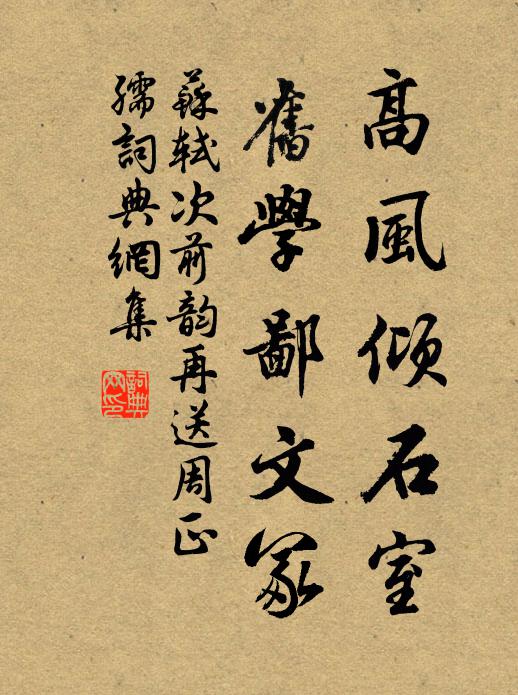 高風傾石室
舊學鄙文冢
蘇軾次前韵再送周正
孺詞典網集
詞典